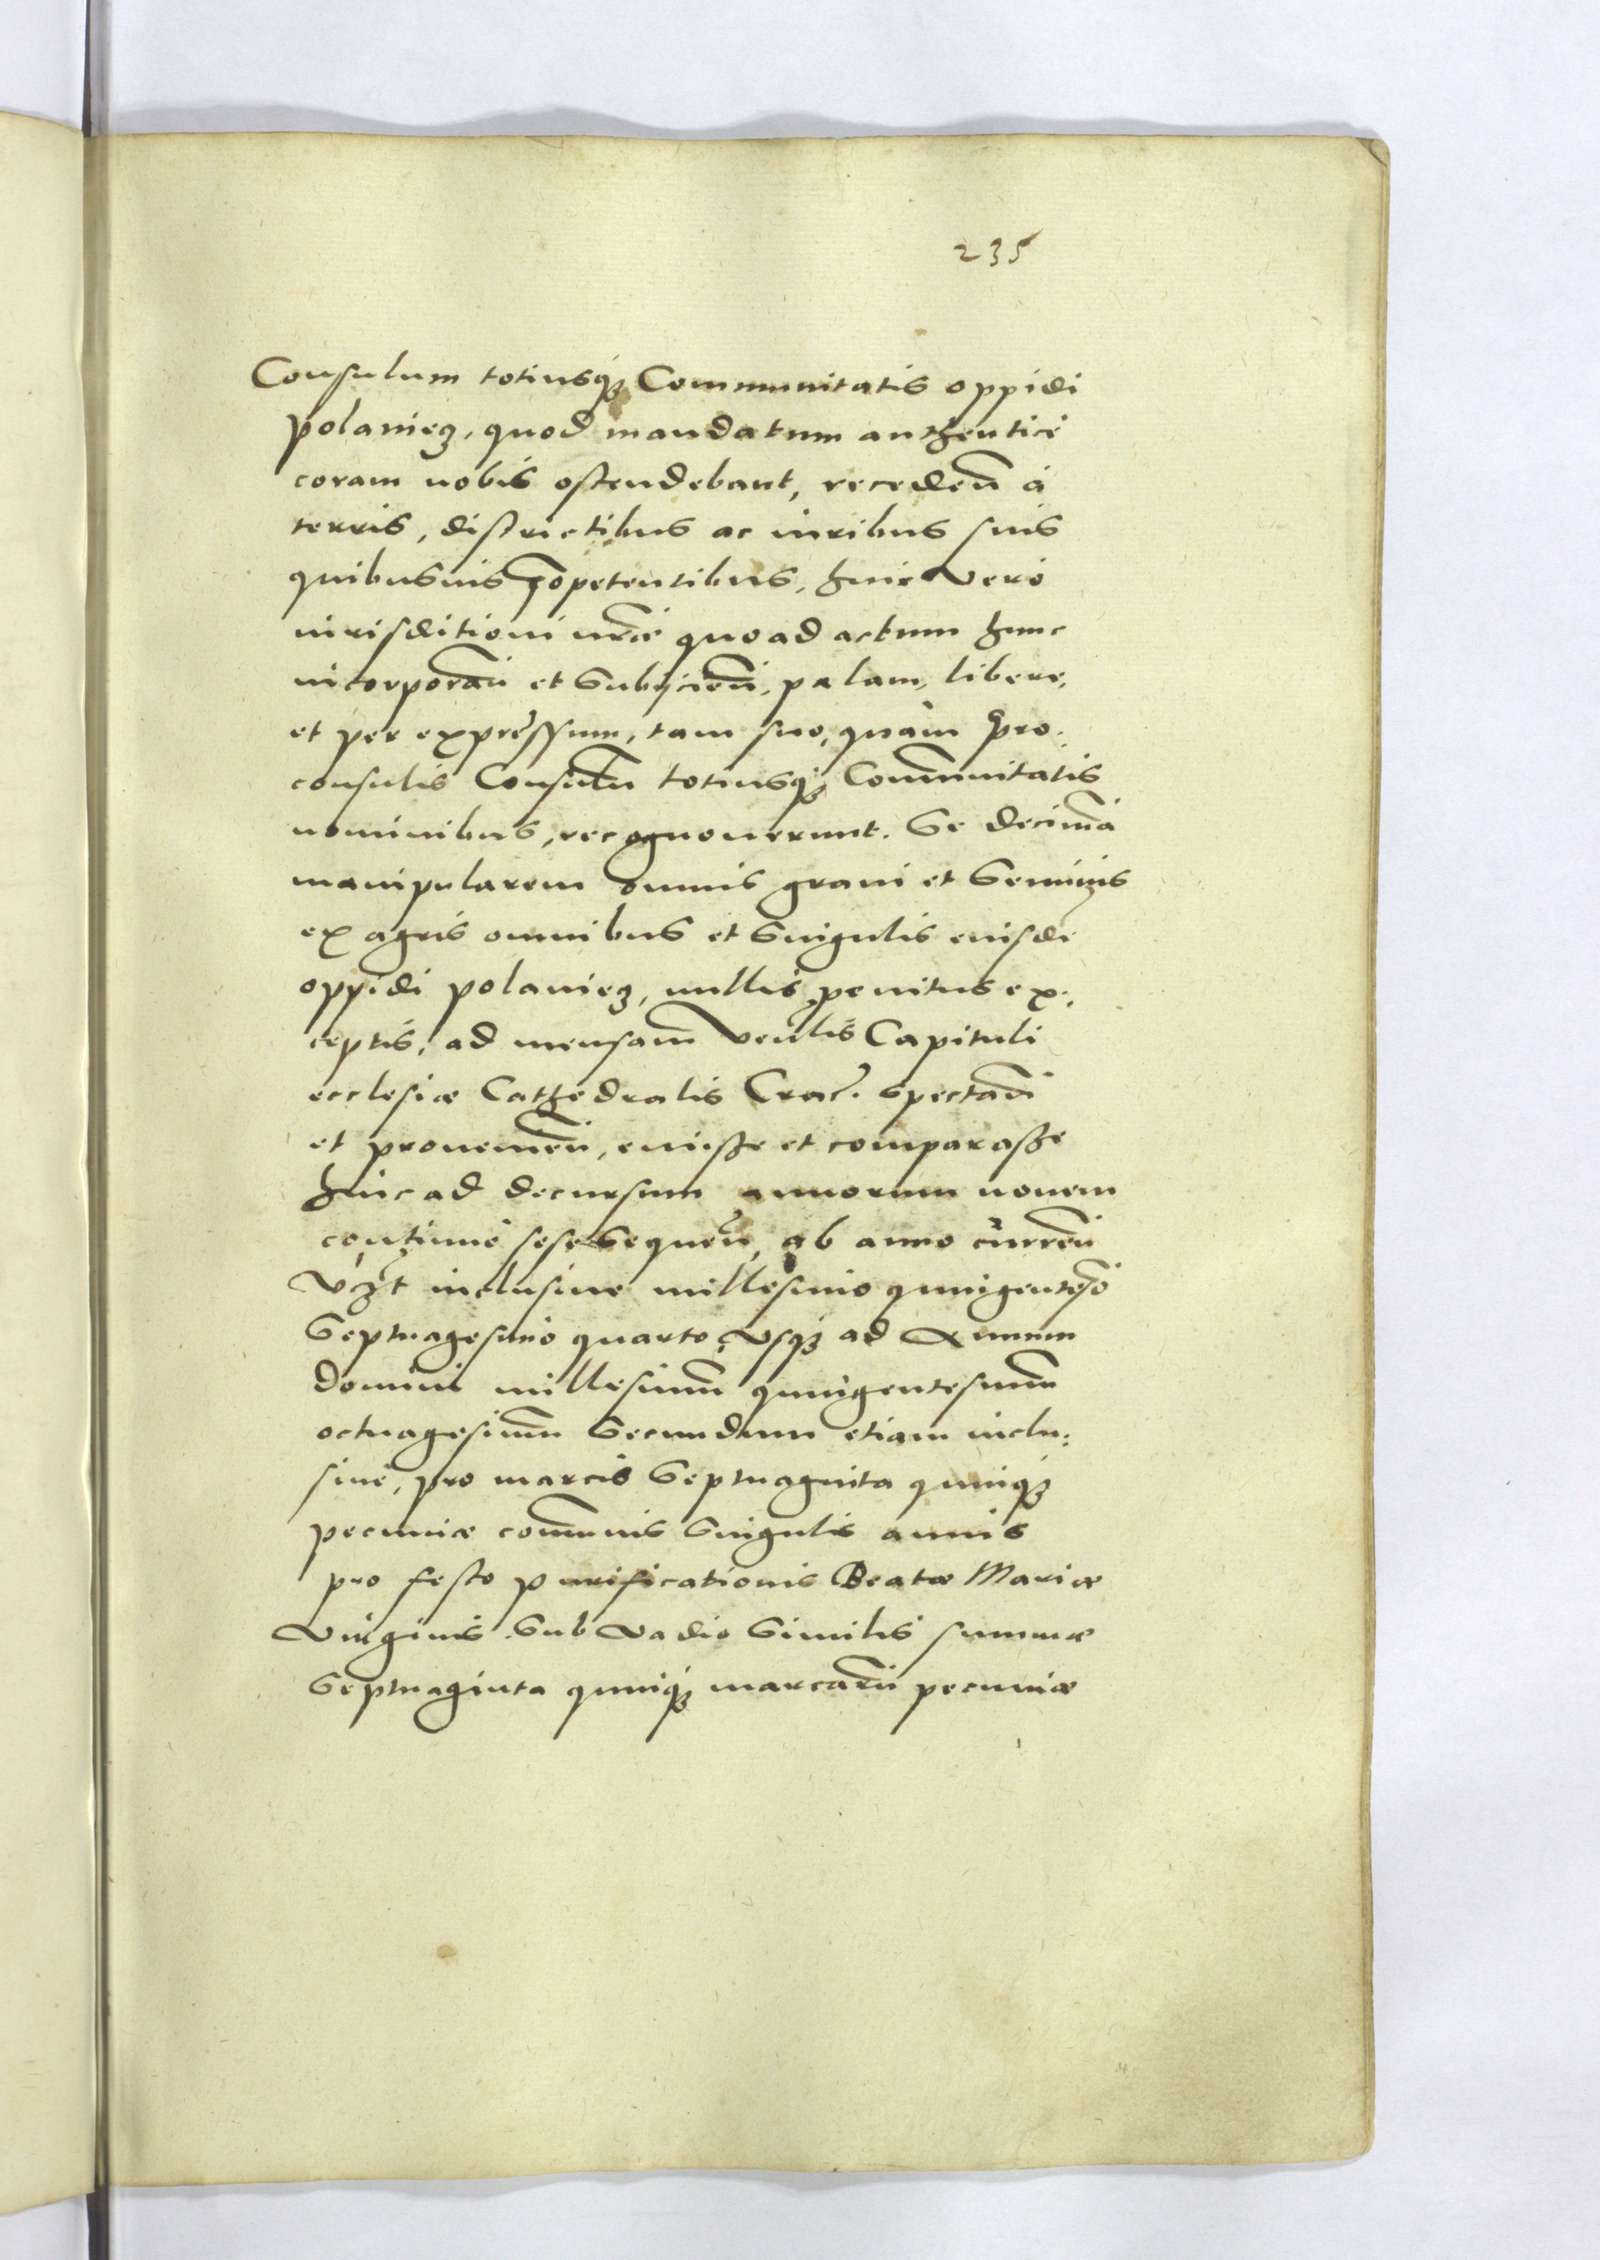 235
Consulum totiusq; Communitatis oppidi
polaniecz, quod mandatum authenticè
coram nobis ostendebant, recedeñ à
terris, districtibus ac iuribus suis
quibusuis competentibus, huic vero
iurisditioni nrae quo ad actum hunc
incorporañ et Subijcieñ, palam, libere,
et per expressum, tam suo, quàm Pro:
consulis Consulũ totiusq; Com̃unitatis
nominibus, recognouerunt. Se decimã
manipularem omnis grani et Seminis
ex agris omnibus et Singulis eiusdẽ
oppidi polaniecz, nullis penitus ex:
ceptis, ad mensam Veñlis Capituli
ecclesiæ Cathedralis Crac. Spectañ
et prouenieñ, emisse et comparasse
hinc ad decursum annorum nouem
continuè sese Sequeñ, ab anno curreñ
Vzt inclusiue millesimo quingentesõ
Septuagesimo quarto, Vsq; ad Annum
domini millesimũ quingentesimũ
octuagesimũ Secundum etiam inclu:
siuè, pro marcis Septuaginta quinq;
pecuniæ com̃unis Singulis annis
pro festo purificationis Beatæ Mariæ
Virginis Sub Vadio Similis summæ
Septuaginta quinq; marcarũ pecuniæ